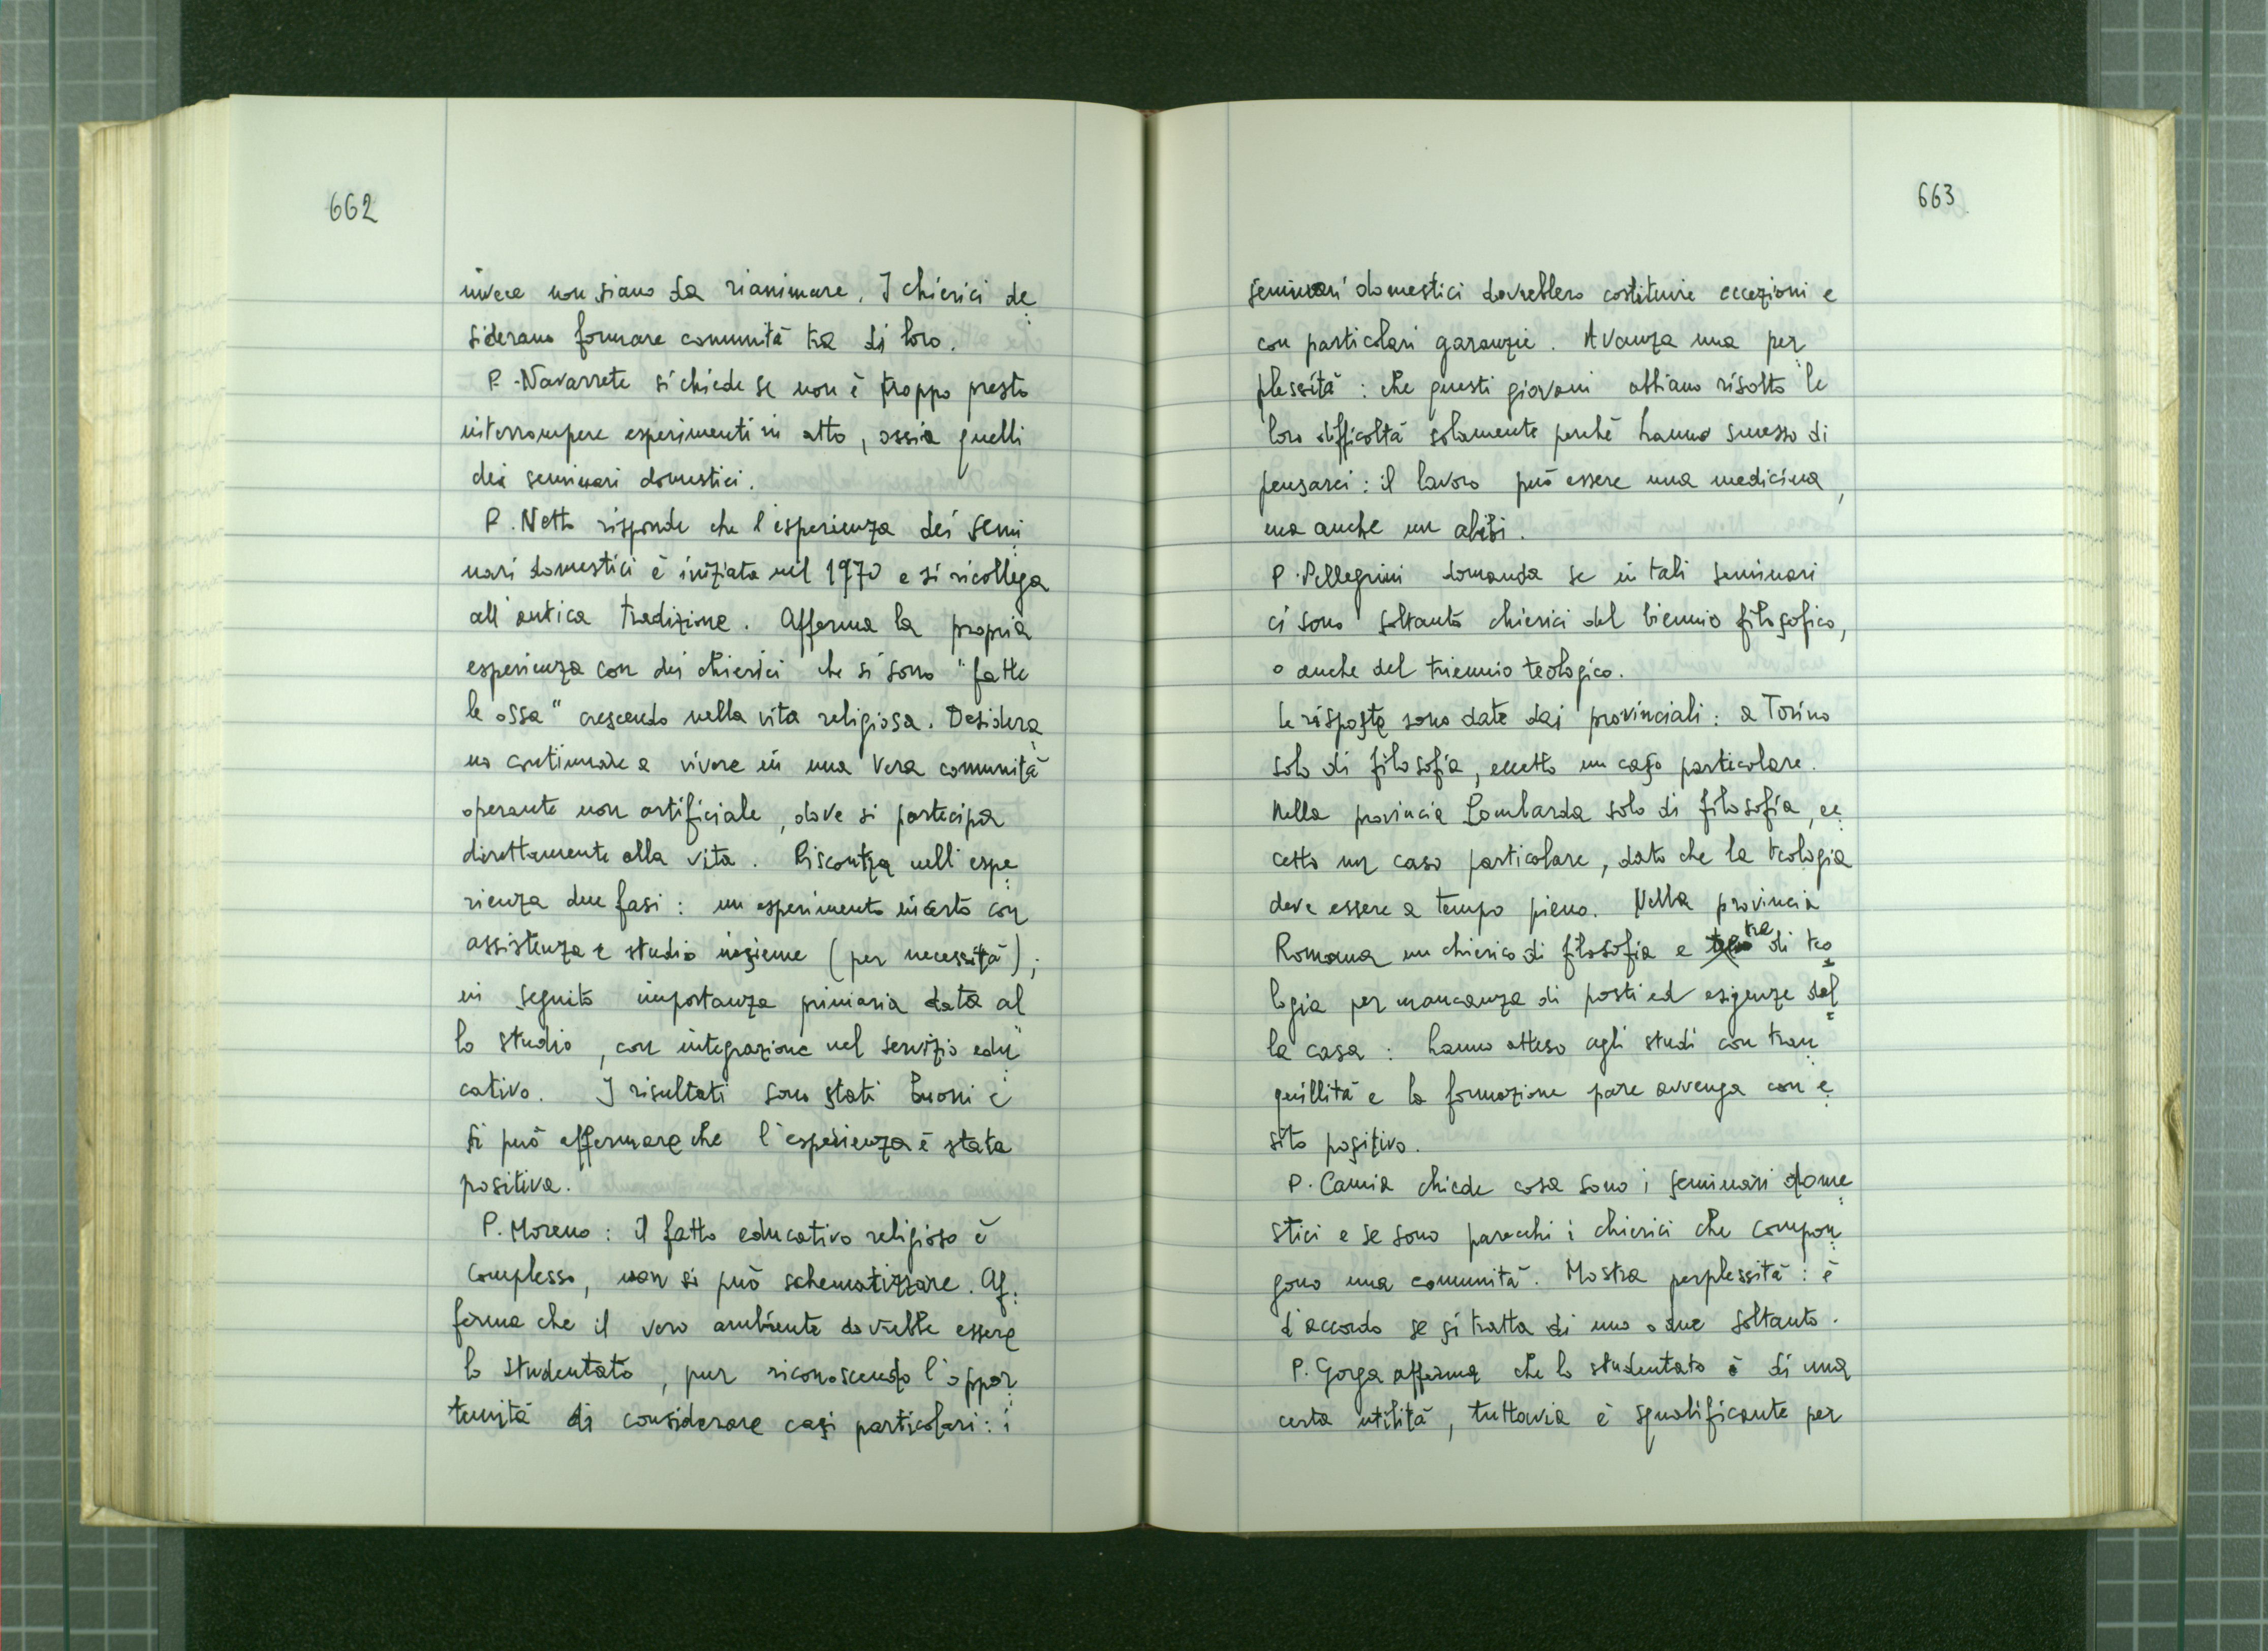 662
invece non siano da rianimare. I chierici de
siderano formare comunità tra di loro.
P. Navarrete si chiede se non è troppo presto
interrompere esperimenti in atto, ossia quelli
dei seminari domestici.
P. Netto risponde che l'esperienza dei semi
nari domestici è iniziata nel 1970 e si ricollega
all'antica tradizione. Afferma la propria
esperienza con dei chierici che si sono "fatte
le ossa" crescendo nella vita religiosa. Desidera
no continuare a vivere in una vera comunità
operante non artificiale, dove si partecipa
direttamente alla vita. Riscontra nell'espe
rienza due fasi: un esperimento incerto con
assistenza e studio insieme (per necessità);
in seguito importanza primaria data al
lo studio, con integrazione nel servizio edu
cativo. I risultati sono stati buoni e
si può affermare che l'esperienza è stata
positiva.
P. Moreno: il fatto educativo religioso è
complesso, non si può schematizzare. Af
ferma che il vero ambiente dovrebbe essere
lo studentato, pur riconoscendo l'oppor
tunità di considerare casi particolari: i
663
seminari domestici dovrebbero costituire eccezioni e
con particolari garanzie. Avanza una per
plessità: che questi giovani abbiano risolto le
loro difficoltà solamente perché hanno smesso di
pensarci: il lavoro può essere una medicina,
ma anche un alibi.
P. Pellegrini domanda se in tali seminari
ci sono soltanto chierici del biennio filosofico,
o anche del triennio teologico.
Le risposte sono date dai provinciali: a Torino
solo di filosofia, eccetto un caso particolare.
Nella provincia Lombarda solo di filosofia, ec
cetto un caso particolare, dato che la teologia
deve essere a tempo pieno. Nella provincia
Romana un chierico di filosofia e tre di teo
logia per mancanza di posti ed esigenze del
la casa: hanno atteso agli studi con tran
quillità e la formazione pare avvenga con e
sito positivo.
P. Camia chiede cosa sono i seminari dome
stici e se sono parecchi i chierici che compon
gono una comunità. Mostra perplessità: è
d'accordo se si tratta di uno o due soltanto.
P. Gorga afferma che lo studentato è di una
certa utilità, tuttavia è squalificante per